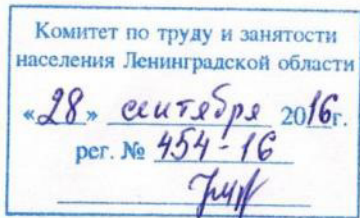 Комитет по труду и занятости
населения Ленинградской области
«28» сентября 2016г.
рег. № 454-16